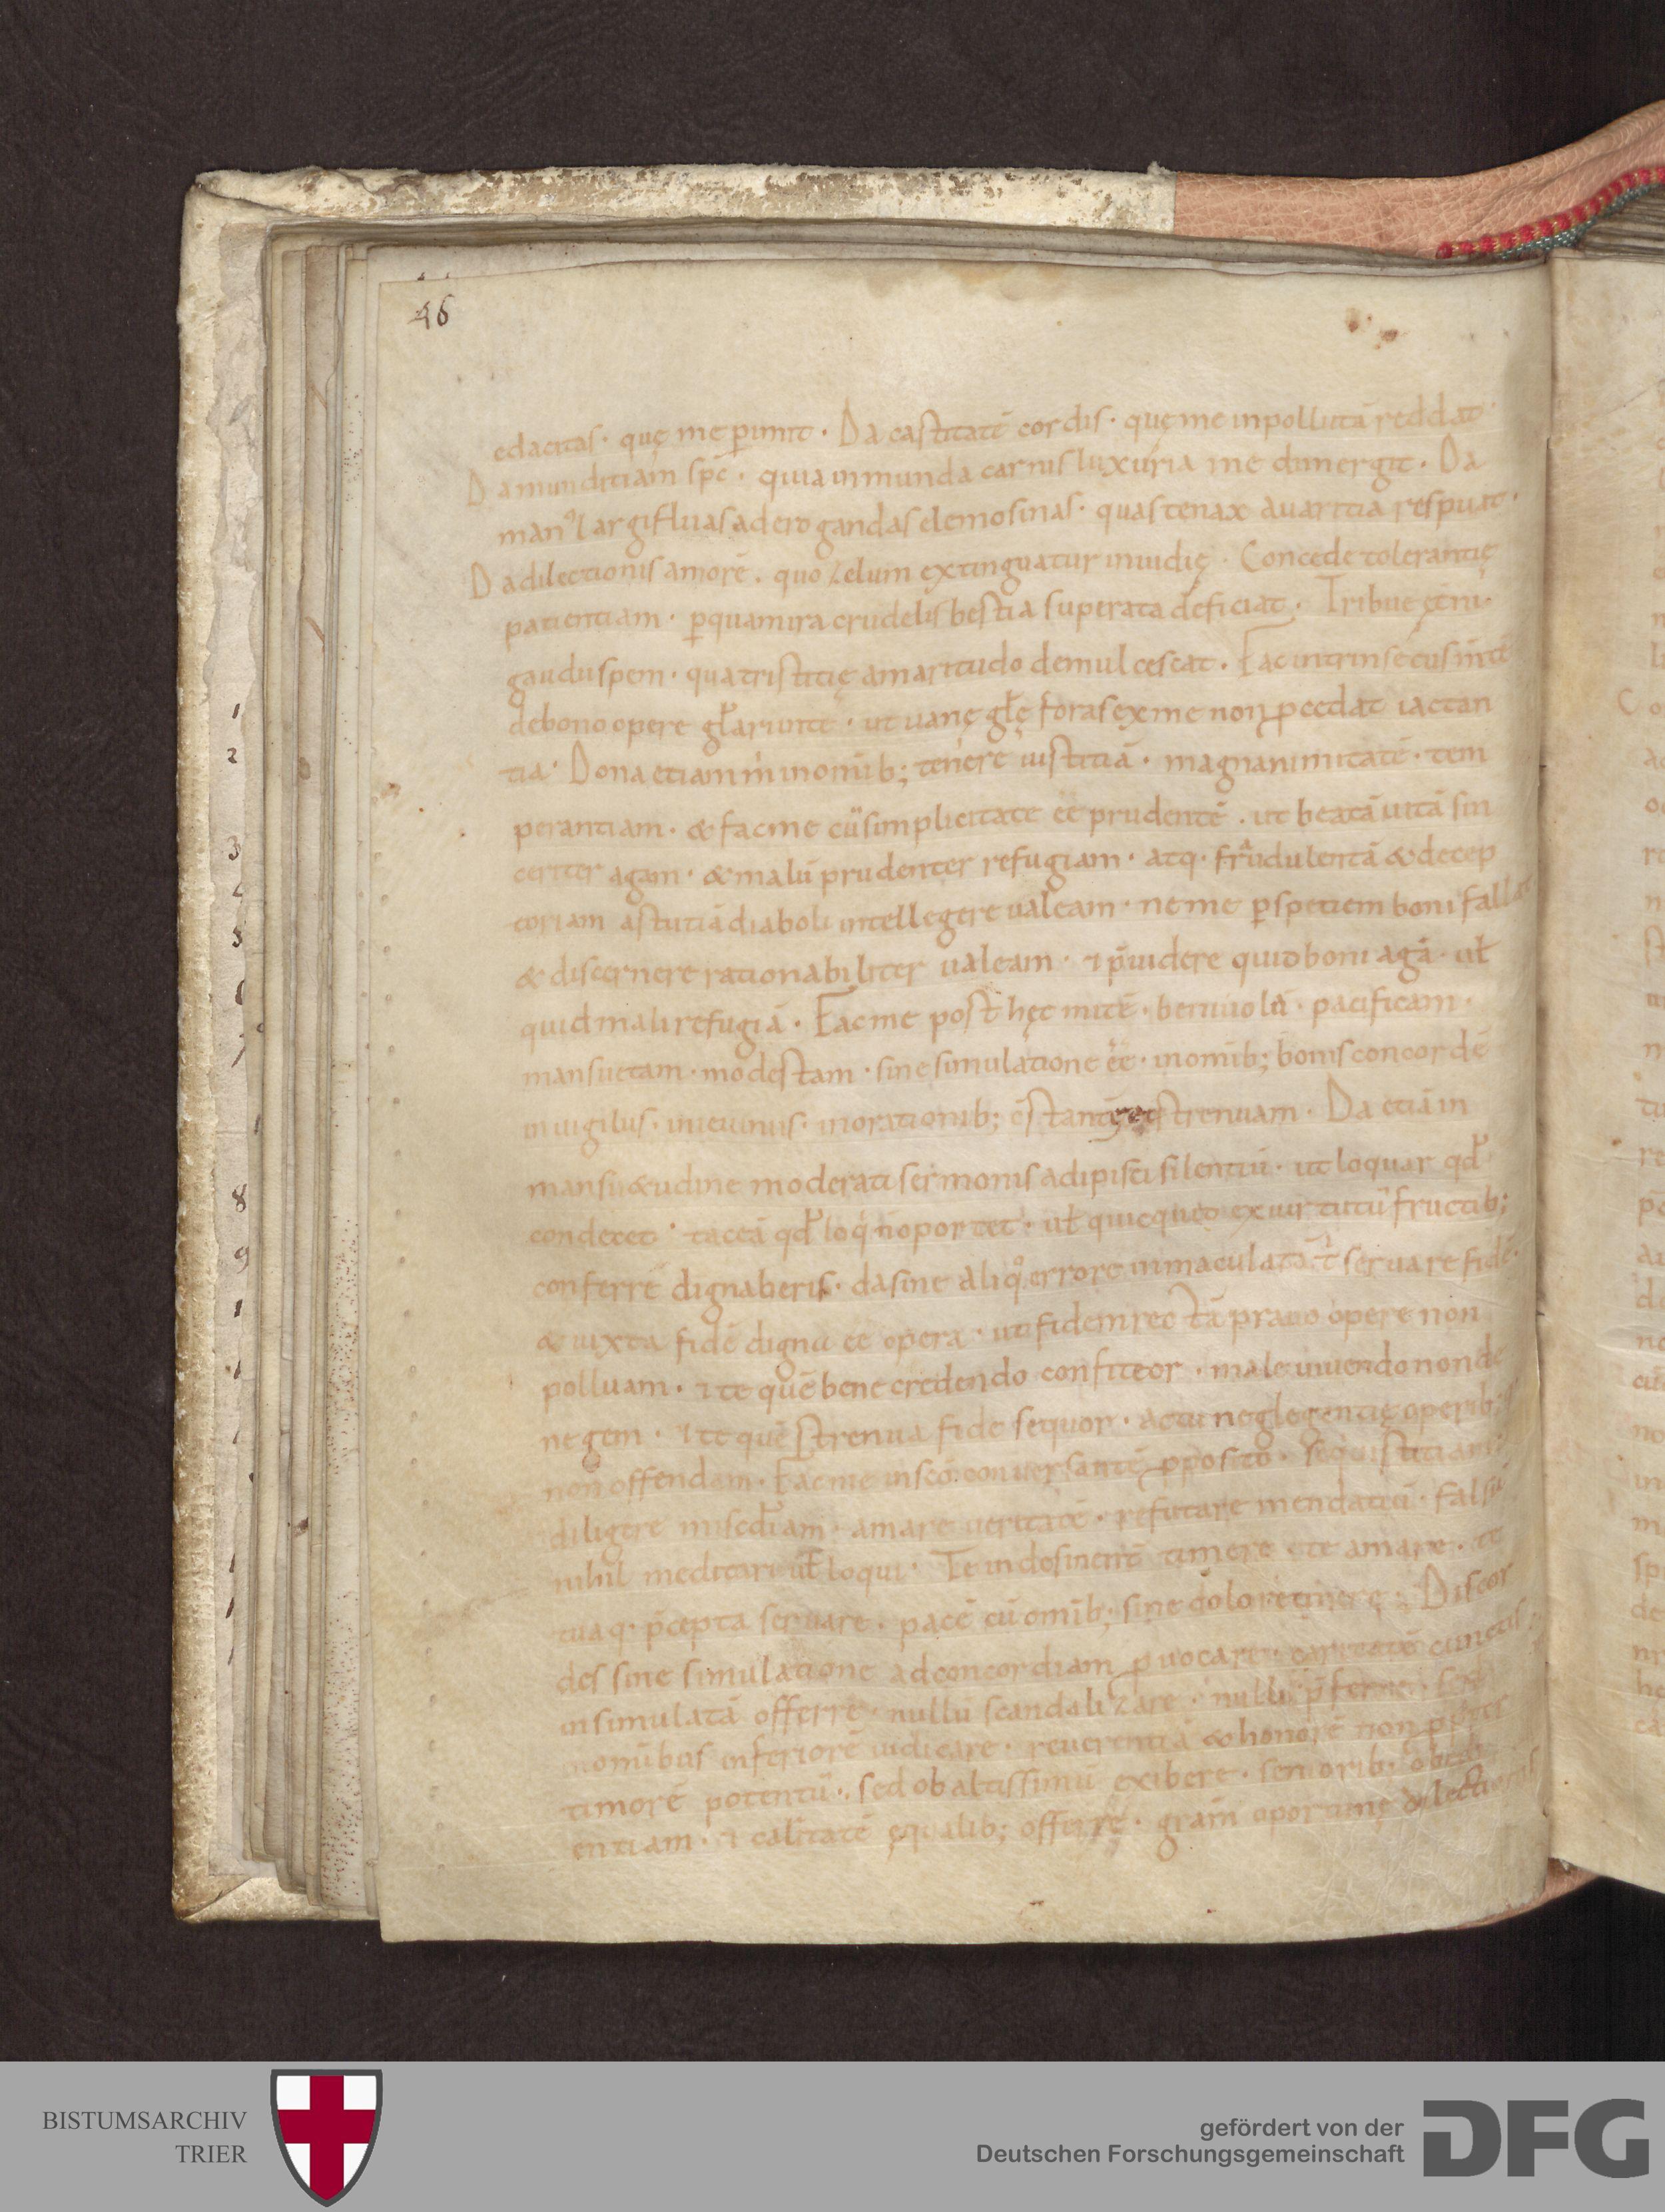 46
edacitas · quę me ꝑimit · Da castitatē cordis · quę me inpollutā reddat
Da munditiam spei · quia inmunda carnis luxuria me dimergit · Da
man⁹ largifluas ad erogandas elemosinas · quas tenax auaritia respuat ·
Da dilectionis amorē · quo zelum extinguatur inuidię · Concede tolerantię
patientiam · ꝑ quam ira crudelis bestia superata deficiat · Tribue
gaudii spem · qua tristitię amaritudo demulcescat · Fac intrinsecus
de bono opere gl̄ari in te · ut uanę gl̄ę foras ex me non ꝓcedat iactan
tia · Dona etiam m̄ in omīb; tenere iustitiā · magnanimitatē · tem
perantiam · & fac me cū simplicitate ēē prudentē · ut beatā uitā sin
ceriter agam · & malū prudenter refugiam · atq · fraudulentā & decep
toriam astutiā diaboli intellegere ualeam · ne me ꝑ spetiem boni fallat
& discernere rationabiliter ualeam · ⁊ p̄uidere quid boni agā · ul̄
quid mali refugiā · Fac me post hęc mitē · beniuolā · pacificam ·
mansuetam · modestam · sine simulatione ēē · in omīb; bonis concordē
in uigiliis · in ieiuniis · in orationib; strenuam · Da etiā in
mansu&udine moderati sermonis adipisci silentiū · ut loquar qđ
condecet · taceā qđ loqi n̄ oportet · ul̄ ex uirtutū fructib;
conferre dignaberis · da sine aliqo errore inmaculatā seruare fidē ·
& iuxta fidē dignū ēē opera · ut fidem rectā prauo opere non
polluam · ⁊ te quē bene credendo confiteor · male uiuendo non de
negem · ⁊ te quē strenua fide sequor · actu neglegentię operib;
non offendam · Fac me in scō conuersantē ꝓposito · sequi iustitiam
diligere miscđiam · amare ueritatē · refutare mendatiū · falsū
nihil meditari ul̄ loqui · Te indesinent̄ timere · te amare · te
tuaq · p̄cepta seruare · pacē cū omīb; sine dolo retinere · Discor
des sine simulatione ad concordiam ꝓuocare · caritatē cunctis
insimulatā offerre · nullū scandalizare · nulli p̄ferri · sed
inferiorē iudicare · reuerentiā & honorē non ꝓpter
timorē potentū · sed ob altissimū exibere · seniorib; obedi
entiam · ⁊ caritatē ęqualib; offerre · gram̄ oportunę dilectionis
1
2
3
4
5
6
7
8
9
1
BISTUMSARCHIV
TRIER
gefördert von der
Deutschen Forschungsgemeinschaft
DFG